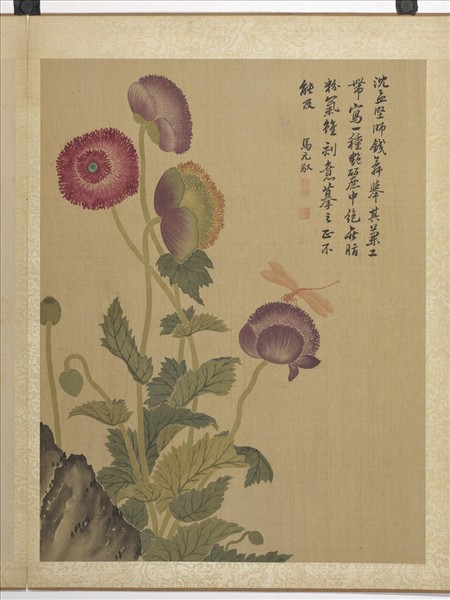 沈孟堅師錢舜舉其工
帶寫一種艷麗中絕無脂
粉氣雖刻意摹之正不
能及 馬元馭